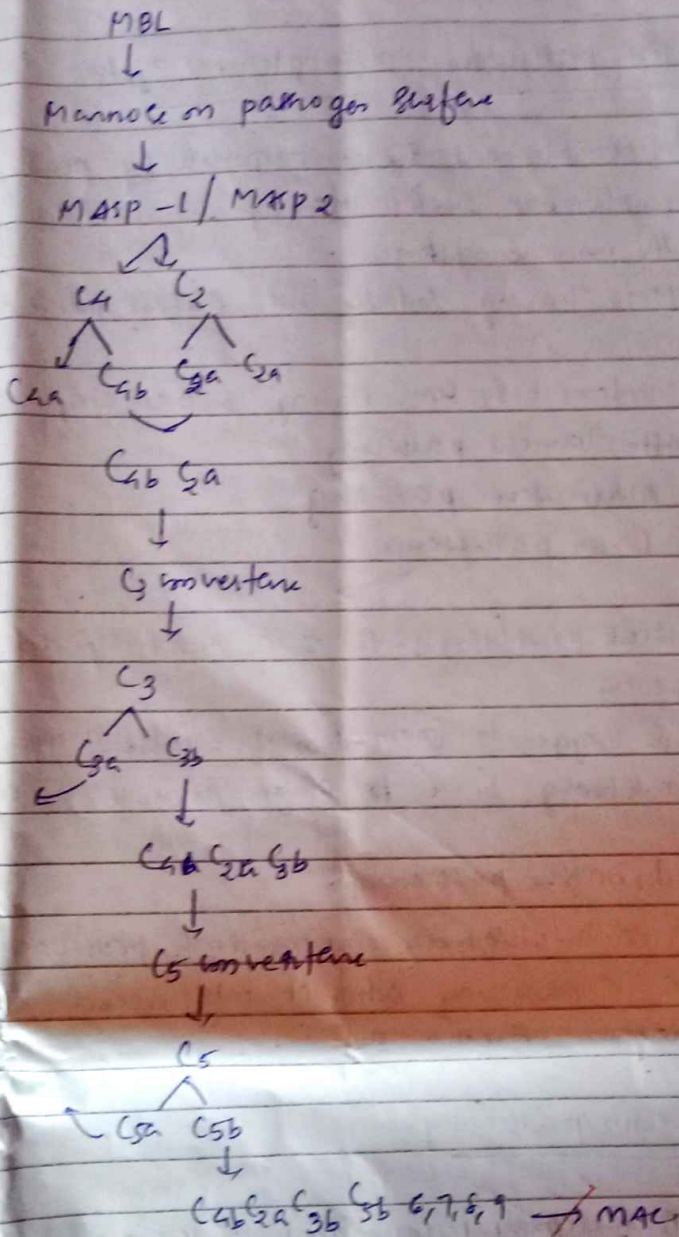 MBL
↓
Mannose on pathogen surface
↓
MASP-1 / MASP 2
C4 C2
C4a C4b C2a C2a
C4b C2a
↓
C3 convertase
↓
C3
C3a C3b
↓
C4b C2a C3b
↓
C5 convertase
↓
C5
C5a C5b
↓
C4b C2a C3b C5b 6,7,8,9 → MAC